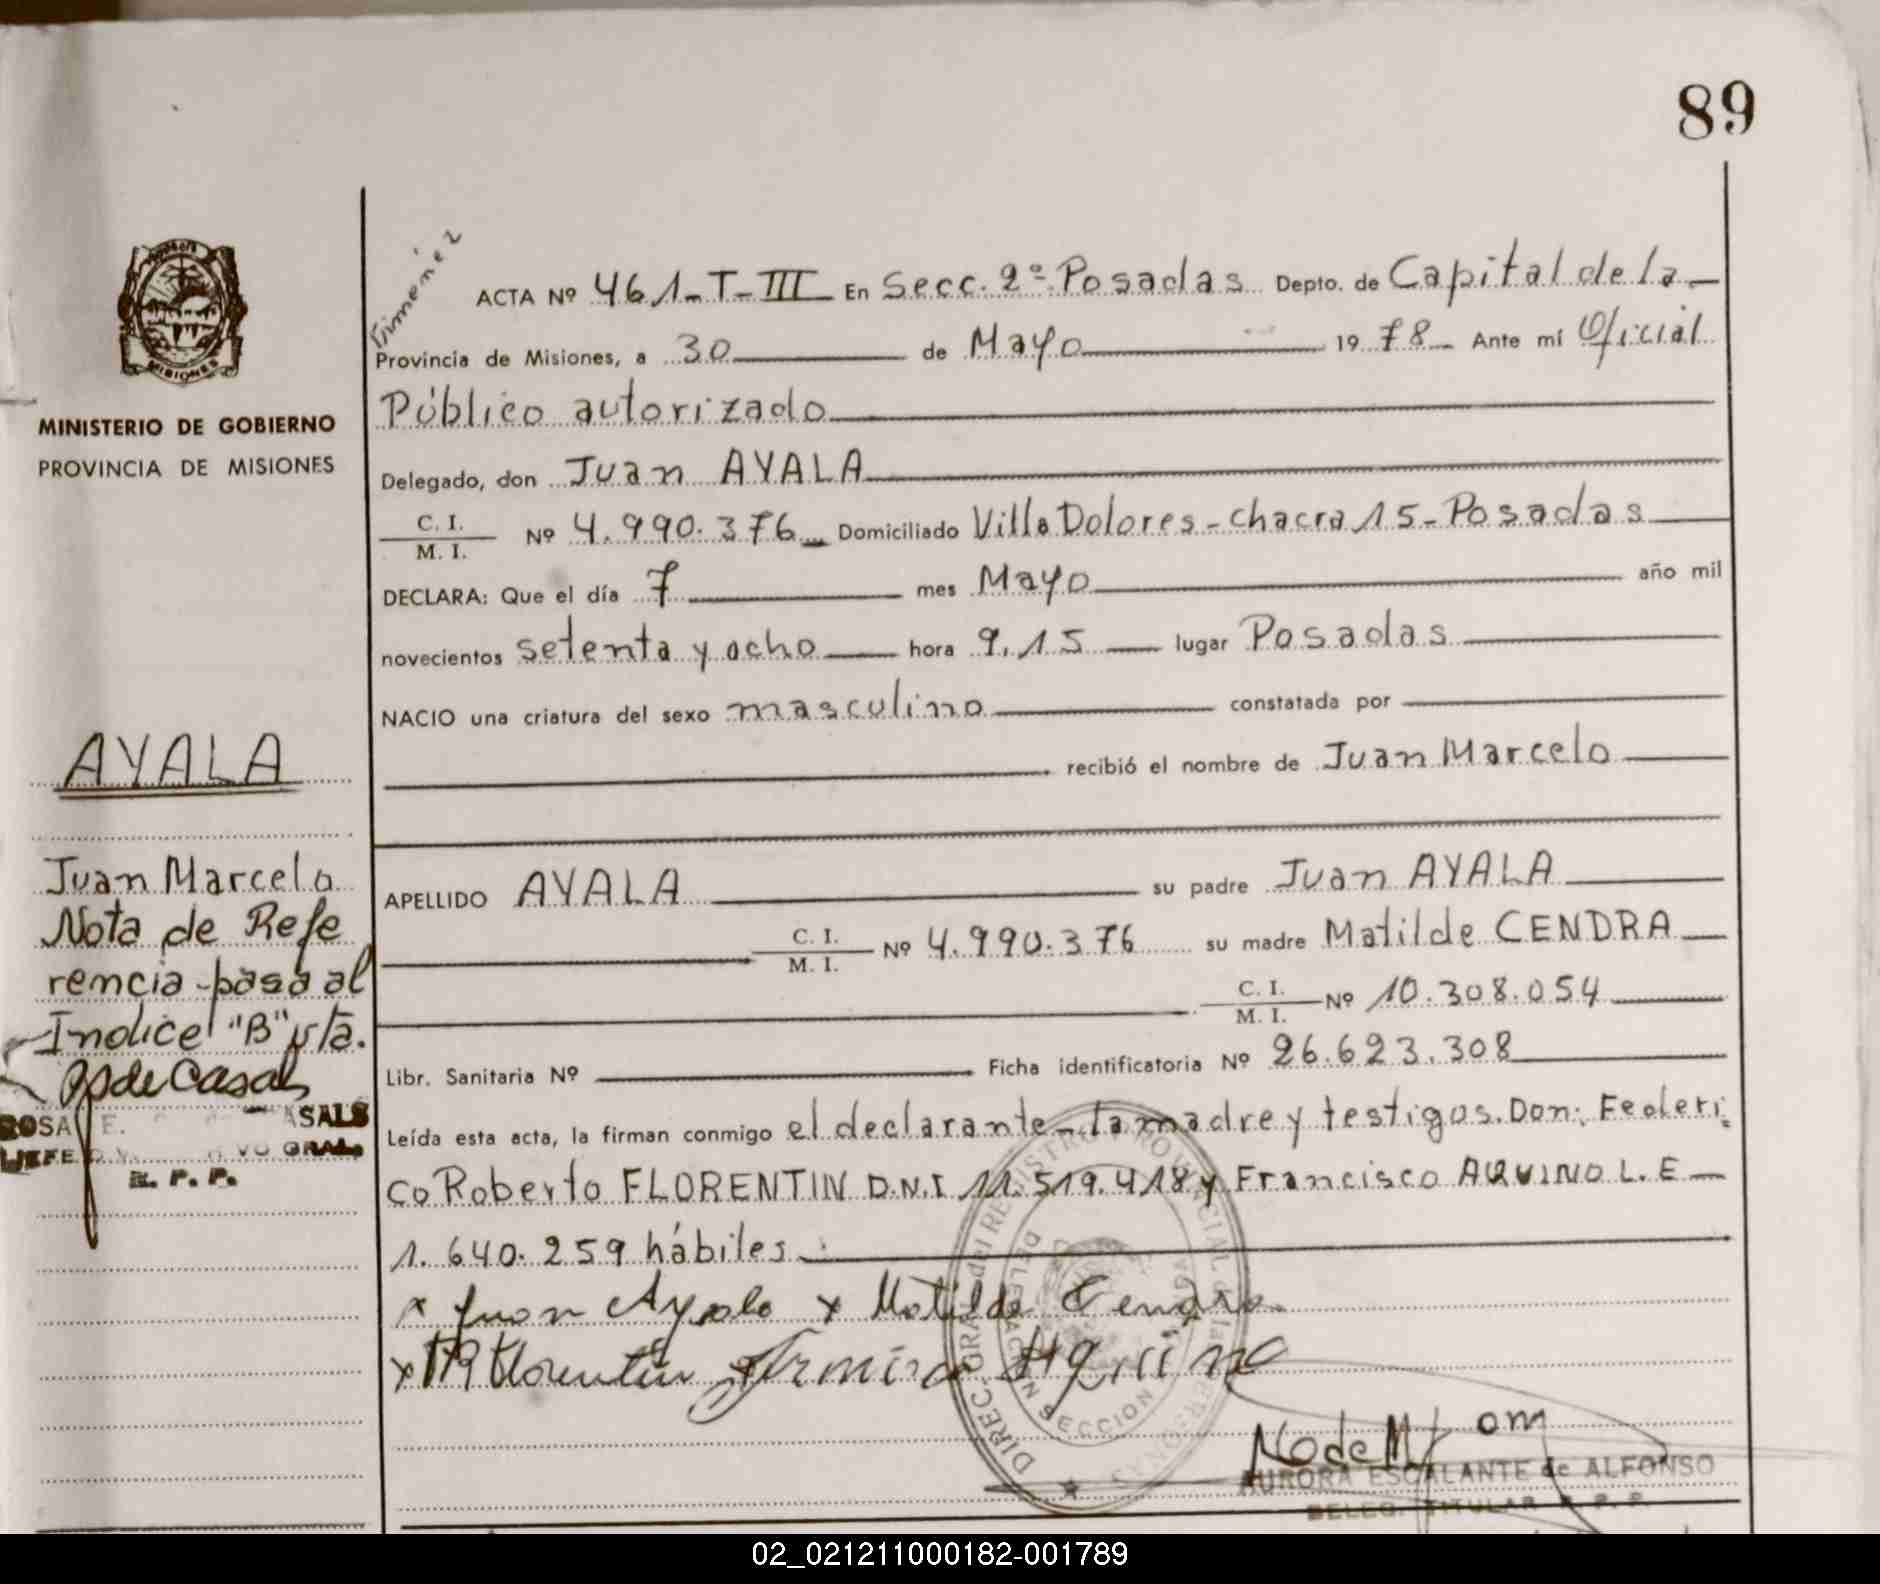 89
MINISTERIO DE GOBIERNO
PROVINCIA DE MISIONES
AYALA
Juan Marcelo
Nota de Refe
rencia pasa al
Indice "B" vta.
ROSA E. ASALS
JEFE GRAL.
R. P. P.
ACTA Nº 461-T-III En Secc. 2º Posadas Depto. de Capital de la
Provincia de Misiones, a 30 de Mayo 1978 Ante mí Oficial
Público autorizado
Delegado, don Juan AYALA
C. I.
M. I. Nº 4.990.376 Domiciliado Villa Dolores - chacra 15 - Posadas
DECLARA: Que el día 7 mes Mayo año mil
novecientos setenta y ocho hora 9,15 lugar Posadas
NACIO una criatura del sexo masculino constatada por
recibió el nombre de Juan Marcelo
APELLIDO AYALA su padre Juan AYALA
C. I.
M. I. Nº 4.990.376 su madre Matilde CENDRA
C. I.
M. I. Nº 10.308.054
Libr. Sanitaria Nº Ficha identificatoria Nº 26.623.308
Leída esta acta, la firman conmigo el declarante - la madre y testigos. Don: Federi
co Roberto FLORENTIN D.N.I 11.519.418 y Francisco AQUINO L.E
1.640.259 hábiles
x Juan Ayala x Matilde Cendra
x Florentin Aquino
AURORA ESCALANTE de ALFONSO
DELEG. TITULAR R. P. P.
02_021211000182-001789